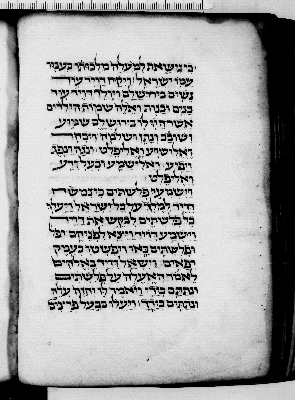 כי נישאת למעלה מלכותו בעבור
עמו ישראל ויקח דויד עוד
נשים בירושלם ויולד דויד עוד
בנים ובנות ואלה שמות הילודים
אשר היו לו בירושלם שמוע
ושובב ונתן ושלמה ויבחר
ואלישוע ואלפלט ונגה ונפג
ויפיע ואלישמע ובעלידע
ואליפלט
וישמעו פלשתים כי נמשח
דויד למלך על כל ישראל ויעלו
כל פלשתים לבקש את דויד
וישמע דויד ויצא לפניהם
ופלשתים באו ויפשטו בעמק
רפאים וישאל דויד באלהים
לאמר האעלה על פלשתים
ונתתם בידי ויאמר לו יהוה עלה
ונתתים בידך ויעלו בבעל פרצים